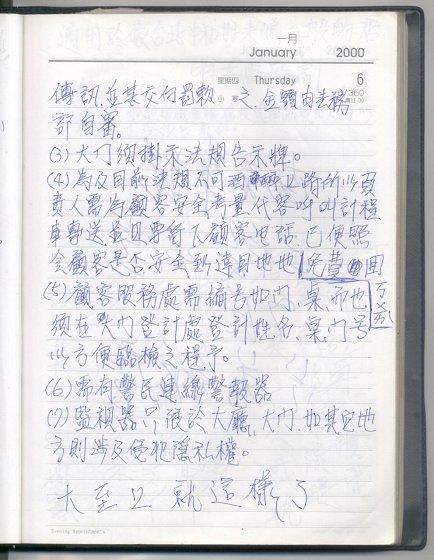 一月
January 2000
星期四 Thursday 6
小寒 6/360
傳訊,並其交付罰款之金額由法務
部自審。
(3)大门須掛示法規告示牌。
(4)為及目前法規不可酒醉上路所以負
責人需為顧客安全考量代客呼叫計程
車專送並且需留下顧客电話,已便照
会顧客是否安全到達目地地 免費
(5)顧客服務處需編号如门、桌,而也
須在大门登計處登計姓名、桌、门号
以方便臨檢之程序。
(6)需有警民連線警報器
(7)監視器只限於大廳,大门,如其它地
方則涉及侵犯隱私權。
大至上就這樣了
Evening Appointments